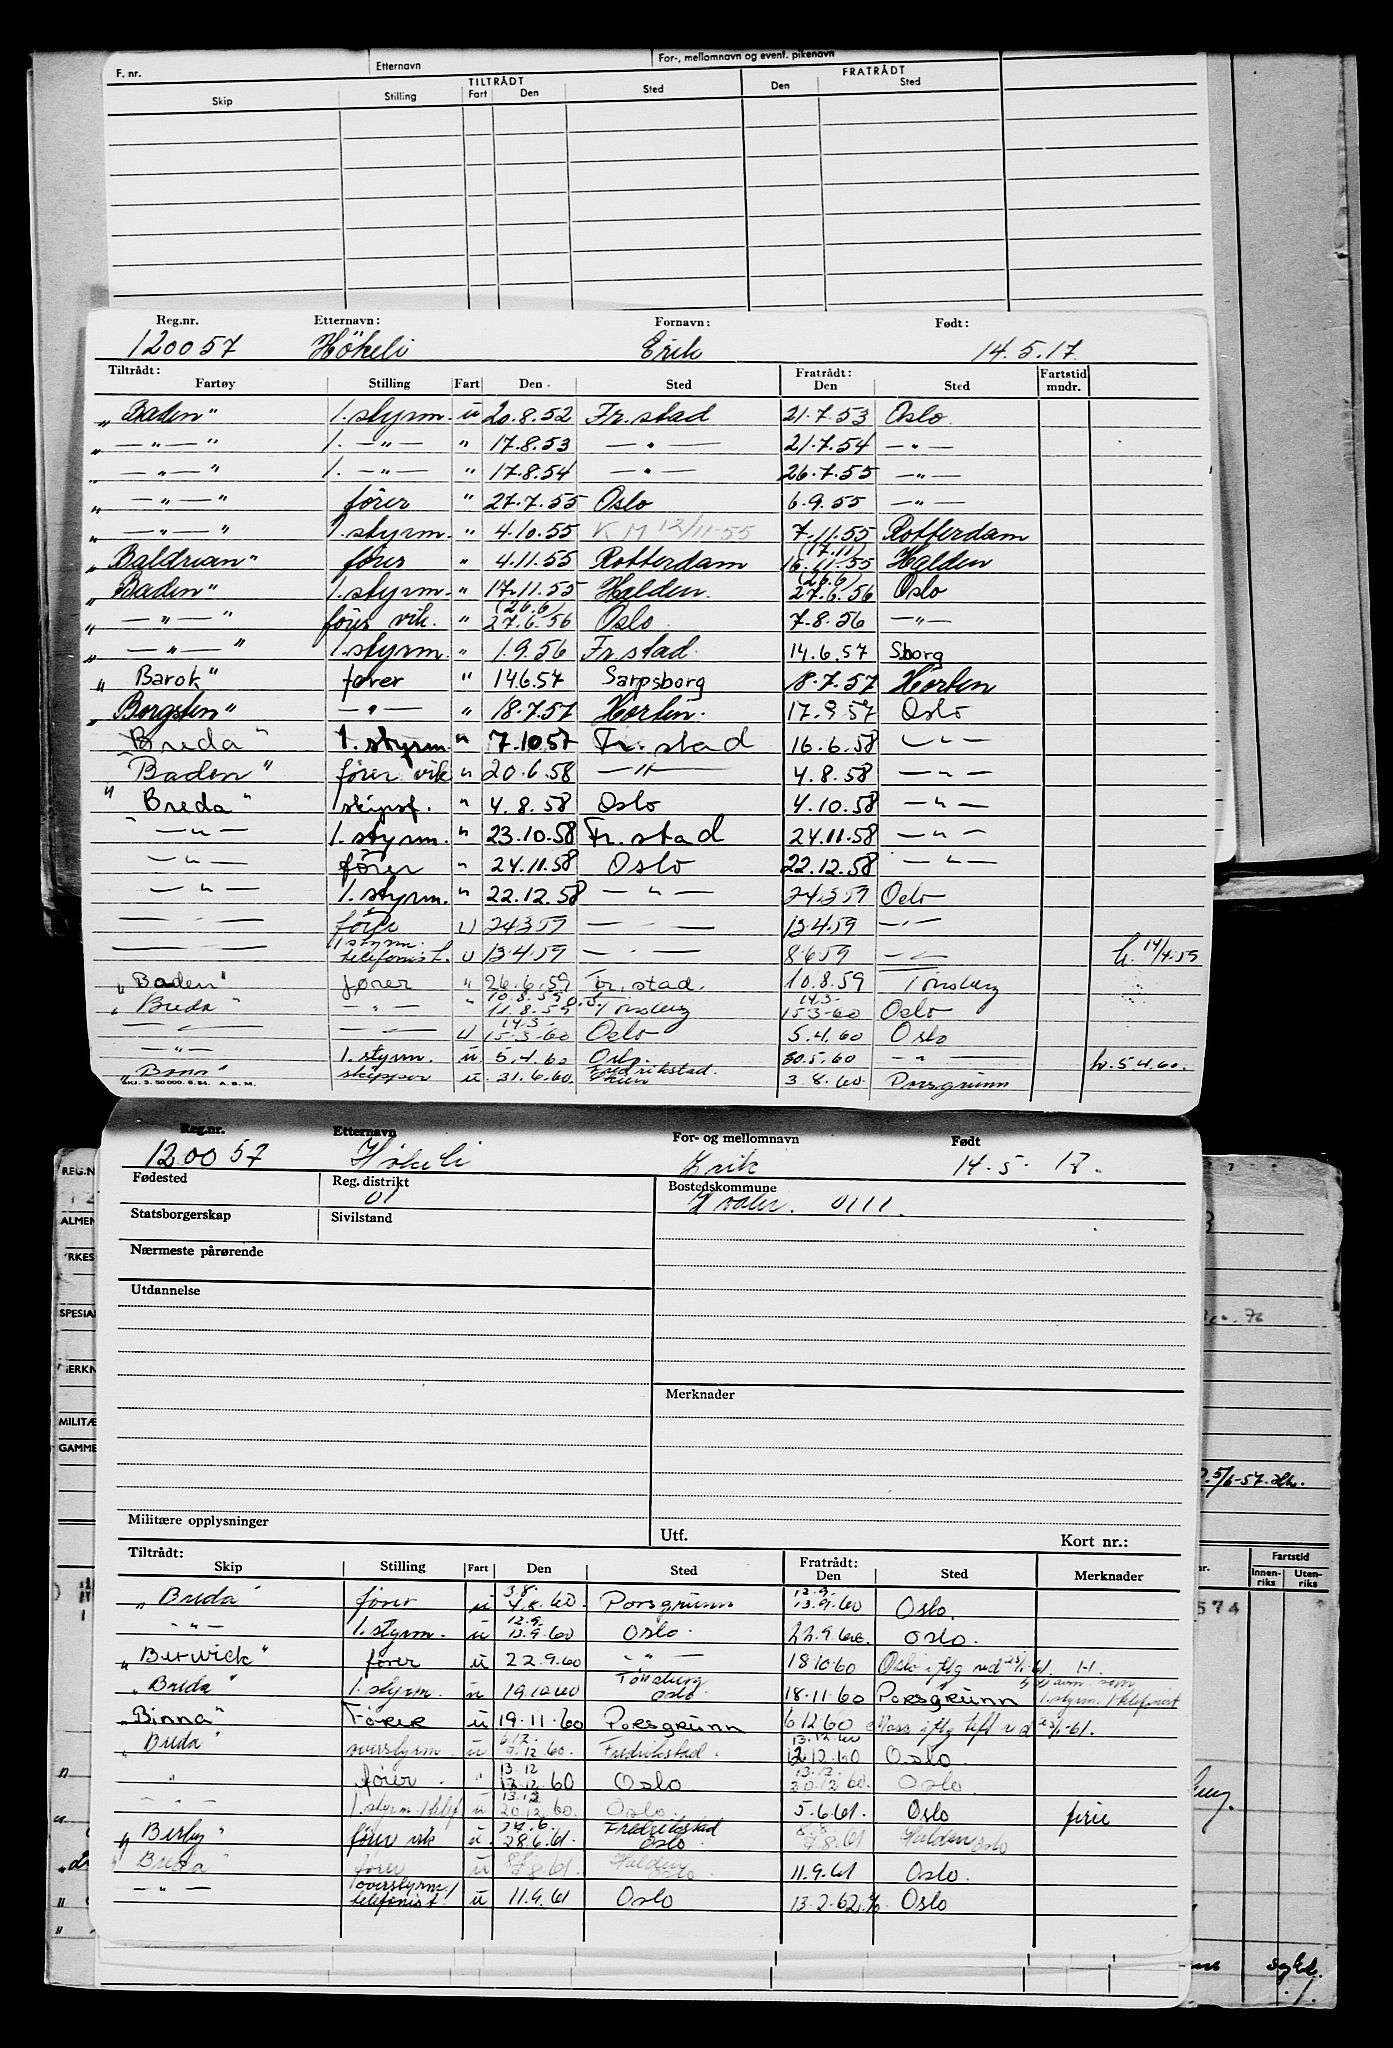 F. nr. Etternavn For-, mellomnavn og event. pikenavn
TILTRÅDT FRATRÅDT
Skip Stilling Fart Den Sted Den Sted
Reg.nr. Etternavn: Fornavn: Født:
120057 Hökeli Erik 14.5.17.
Tiltrådt: Fratrådt: Fartstid
Fartøy Stilling Fart Den Sted Den Sted mndr.
„Baden" 1. styrm. u 20.8.52 Fr.stad 21.7.53 Oslo
„ — „ — " 1. — „ — " 17.8.53 — „ — 21.7.54 — „ —
„ — „ — " 1. — „ — " 17.8.54 — „ — 26.7.55 — „ —
„ — „ — " fører " 27.7.55 Oslo 6.9.55 — „ —
„ — „ — " 1. styrm. " 4.10.55 KM 12/11-55 7.11.55 Rotterdam
„Baldrian" fører " 4.11.55 Rotterdam (17.11) 16.11.55 Halden
„Baden" 1. styrm. " 17.11.55 Halden. (26.6) 27.6.56 Oslo
„ — „ — " fører vik. " (26.6) 27.6.56 Oslo. 7.8.56 — „ —
„ — „ — " 1. styrm. " 1.9.56 Fr.stad. 14.6.57 Sborg
„ Barok" fører " 14.6.57 Sarpsborg 18.7.57 Horten
„Borgsten" — „ — " 18.7.57 Horten. 17.9.57 Oslo
" Breda " 1. styrm. " 7.10.57 Fr. stad 16.6.58 — „ —
" Baden " fører vik " 20.6.58 — „ — 4.8.58 — „ —
" Breda " " 4.8.58 Oslo 4.10.58 — „ —
" — „ — 1. styrm. " 23.10.58 Fr. stad 24.11.58 — „ —
— „ — fører " 24.11.58 Oslo 22.12.58 — „ —
— „ — 1. styrm. " 22.12.58 — „ — 24.3.59 Oslo
fører U 24.3.59 — „ — 13.4.59 — „ —
1 styrm. telefonist. U 13.4.59 — „ — 8.6.59 — „ — h. 14/4.59
„Baden" fører " 26.6.59 Fr. stad. 10.8.59 Tønsberg
„ Breda " — „ — " 10.8.59 11.8.59 Tønsberg 14.3- 15-3-60 Oslo
— „ — — „ — U 14.3- 15-3-60 Oslo 5.4.60 Oslo
— „ — 1. styrm. u 5.4.60 Oslo. 30.5.60 — „ — h. 5.4.60.
skipper u 31.6.60 Fredrikstad. 3.8.60. Porsgrunn
SKJ. 3. 50 000. 8.54. A.B.M.
Reg.nr. Etternavn For- og mellomnavn Født
120057 Høkeli Erik 14.5.17.
Fødested Reg. distrikt Bostedskommune
01 Hvaler. 0111.
Statsborgerskap Sivilstand
Nærmeste pårørende
Utdannelse
Merknader
Militære opplysninger Utf. Kort nr.:
Tiltrådt: Fratrådt:
Skip Stilling Fart Den Sted Den Sted Merknader
„ Breda" fører u 3.8. 4.8.60. Porsgrunn 12.9- 13.9.60 Oslo.
— „ — 1. styrm. u 12.9. 13.9.60 Oslo. 22.9.60. Oslo.
„Berwick" fører u 22.9.60 — „ — 18.10.60
„ Breda" 1. styrm. u 19.10.60 Tönsberg Oslo. 18.11.60 Porsgrunn 1. styrm. / telefonist
„Binna" Fører u 19.11.60 Porsgrunn 6.12.60
„ Breda" overstyrm. u 6.12. 7.12.60. Fredrikstad. 13.12.60 Oslo.
" fører. " 13.12 12.60 Oslo 13.12. 20.12.60. Oslo
— „ — 1. styrm. / telf u 13.12 20.12.60. Oslo. 5.6.61. Oslo ferie
„ Berby" fører vik u. 27.6. 28.6.61. Fredrikstad Oslo. 8.8. 9.8.61 Halden Oslo
„ Breda" fører u 8.8. 9.8.61. Halden Oslo 11.9.61 Oslo.
— „ — overstyrm / telefonist. u 11.9.61 Oslo 13.2.62. Oslo
REG.N
ALMEN
YRKES
SPESIAL
MERKN
MILITÆ
GAMME
5/6-57.
Fartstid
Innen-riks Uten-riks
574